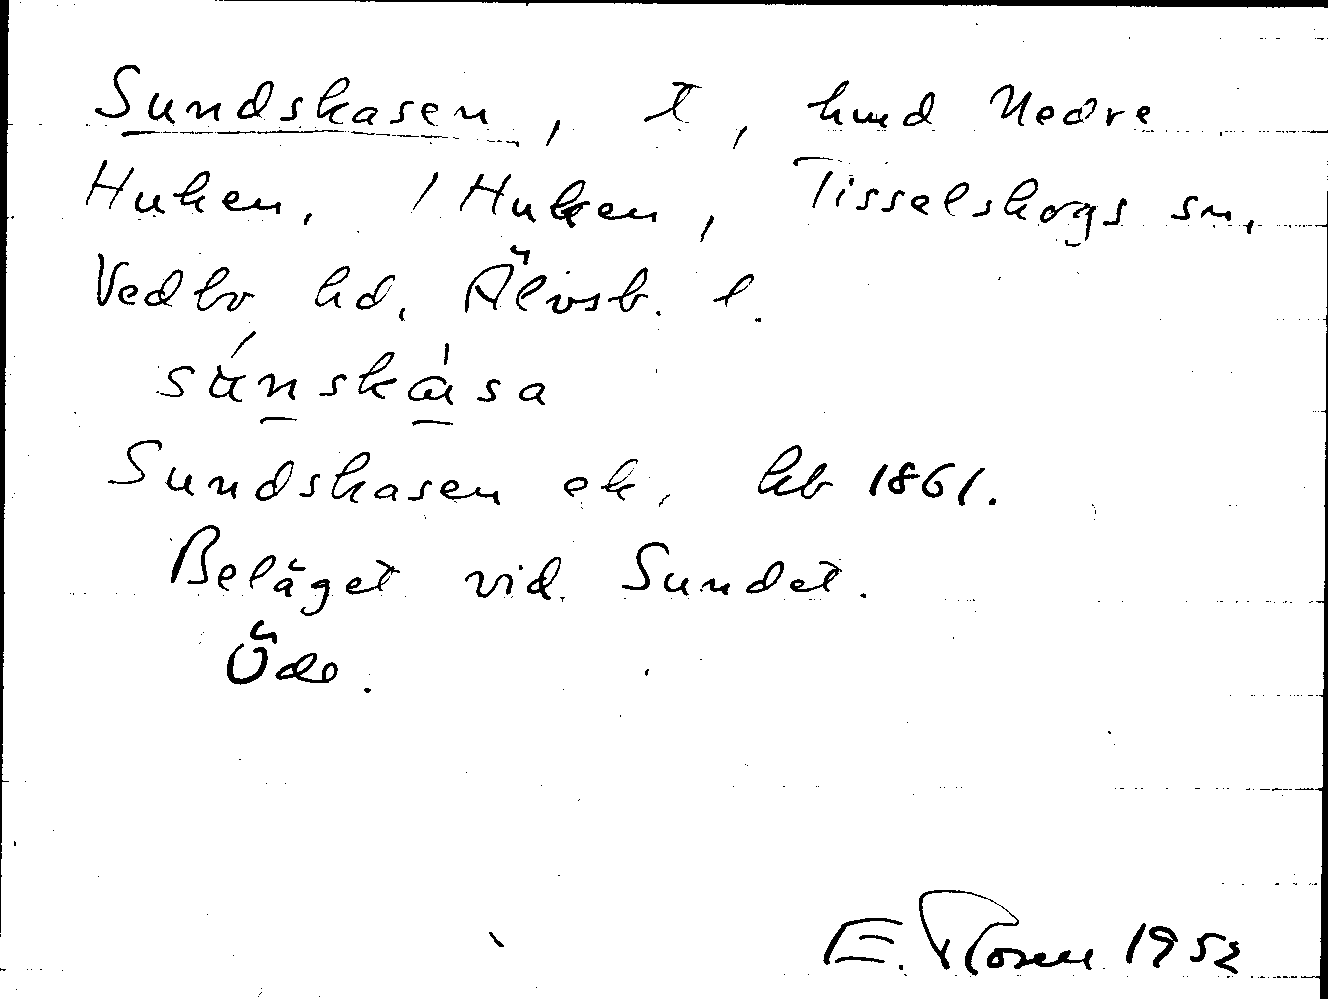 Sundskasen, t, hmd Nedre
Huken, 1 Huken, Tisselskogs sn,
Vedbo hd, Älvsb. l.
sùnskàsa
Sundskasen ek, kb 1861.
Beläget vid Sundet.
Öde.
E. Rosen 1952